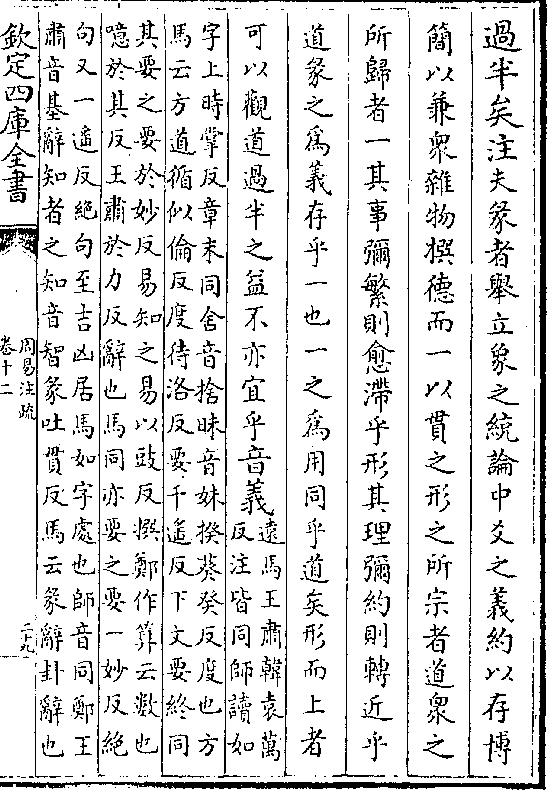 過半矣注夫彖者舉立象之統論中爻之義約以存博
簡以兼衆雜物撰德而一以貫之形之所宗者道衆之
所歸者一其事彌繁則愈滯乎形其理彌約則轉近乎
道彖之為義存乎一也一之為用同乎道矣形而上者
可以觀道過半之益不亦宜乎音義遠馬王肅韓袁萬
反注皆同師讀如
字上時掌反章末同舍音捨昧音妹揆葵癸反度也方
馬云方道循似倫反度待洛反要千遙反下文要終同
其要之要於妙反易知之易以豉反撰鄭作算云數也
噫於其反王肅於力反辭也馬同亦要之要一妙反絶
句又一遥反絶句至吉凶居馬如字處也師音同鄭王
肅音基辭知者之知音智彖吐貫反馬云彖辭卦辭也
欽定四庫全書
周易注疏
卷十二
二十九